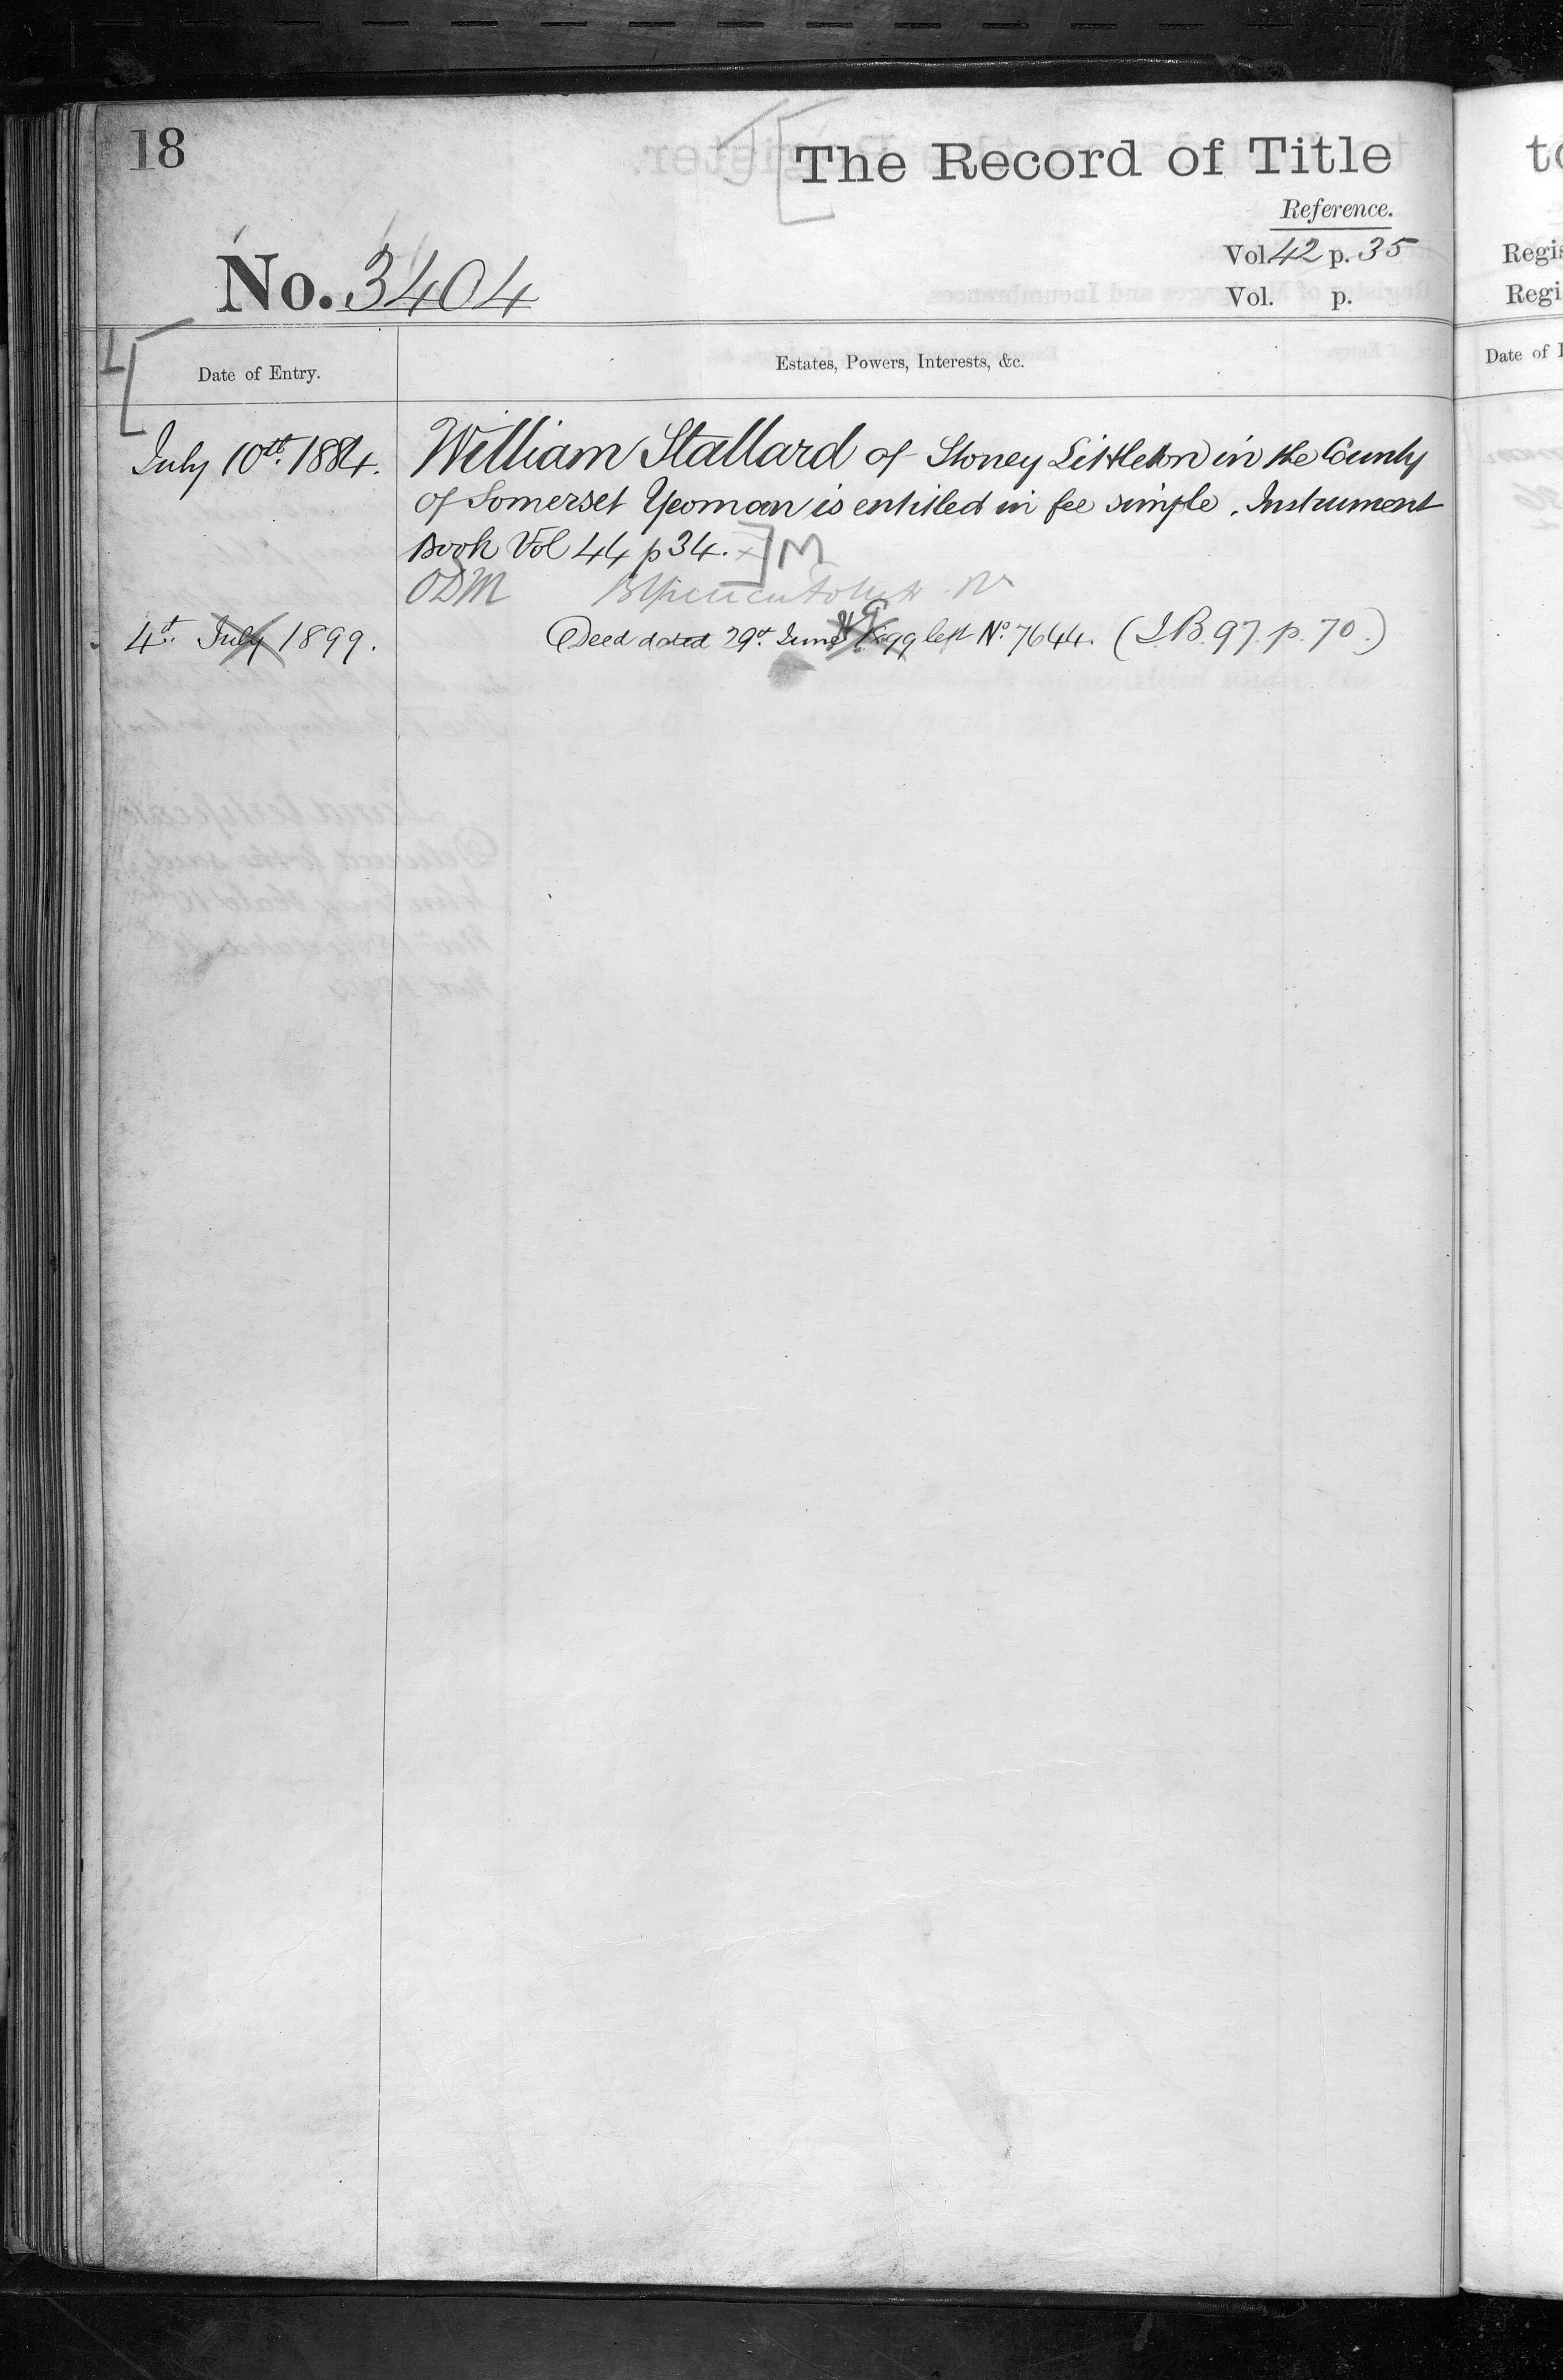 18
The Record of Title
Reference.
Vol. 42 p. 35
No. 3404
Vol. p.
Date of Entry.
Estates, Powers, Interests, &c.
July 10th. 1884.
William Stallard of Stoney Littleton in the County
of Somerset Yeoman is entitled in fee simple. Instrument
Book Vol 44 p 34. ] M
ODM
4th. July 1899.
Deed dated 29th. June 1899 left No. 7644. (I.B. 97. p. 70.)
to
Regis
Regi
Date of